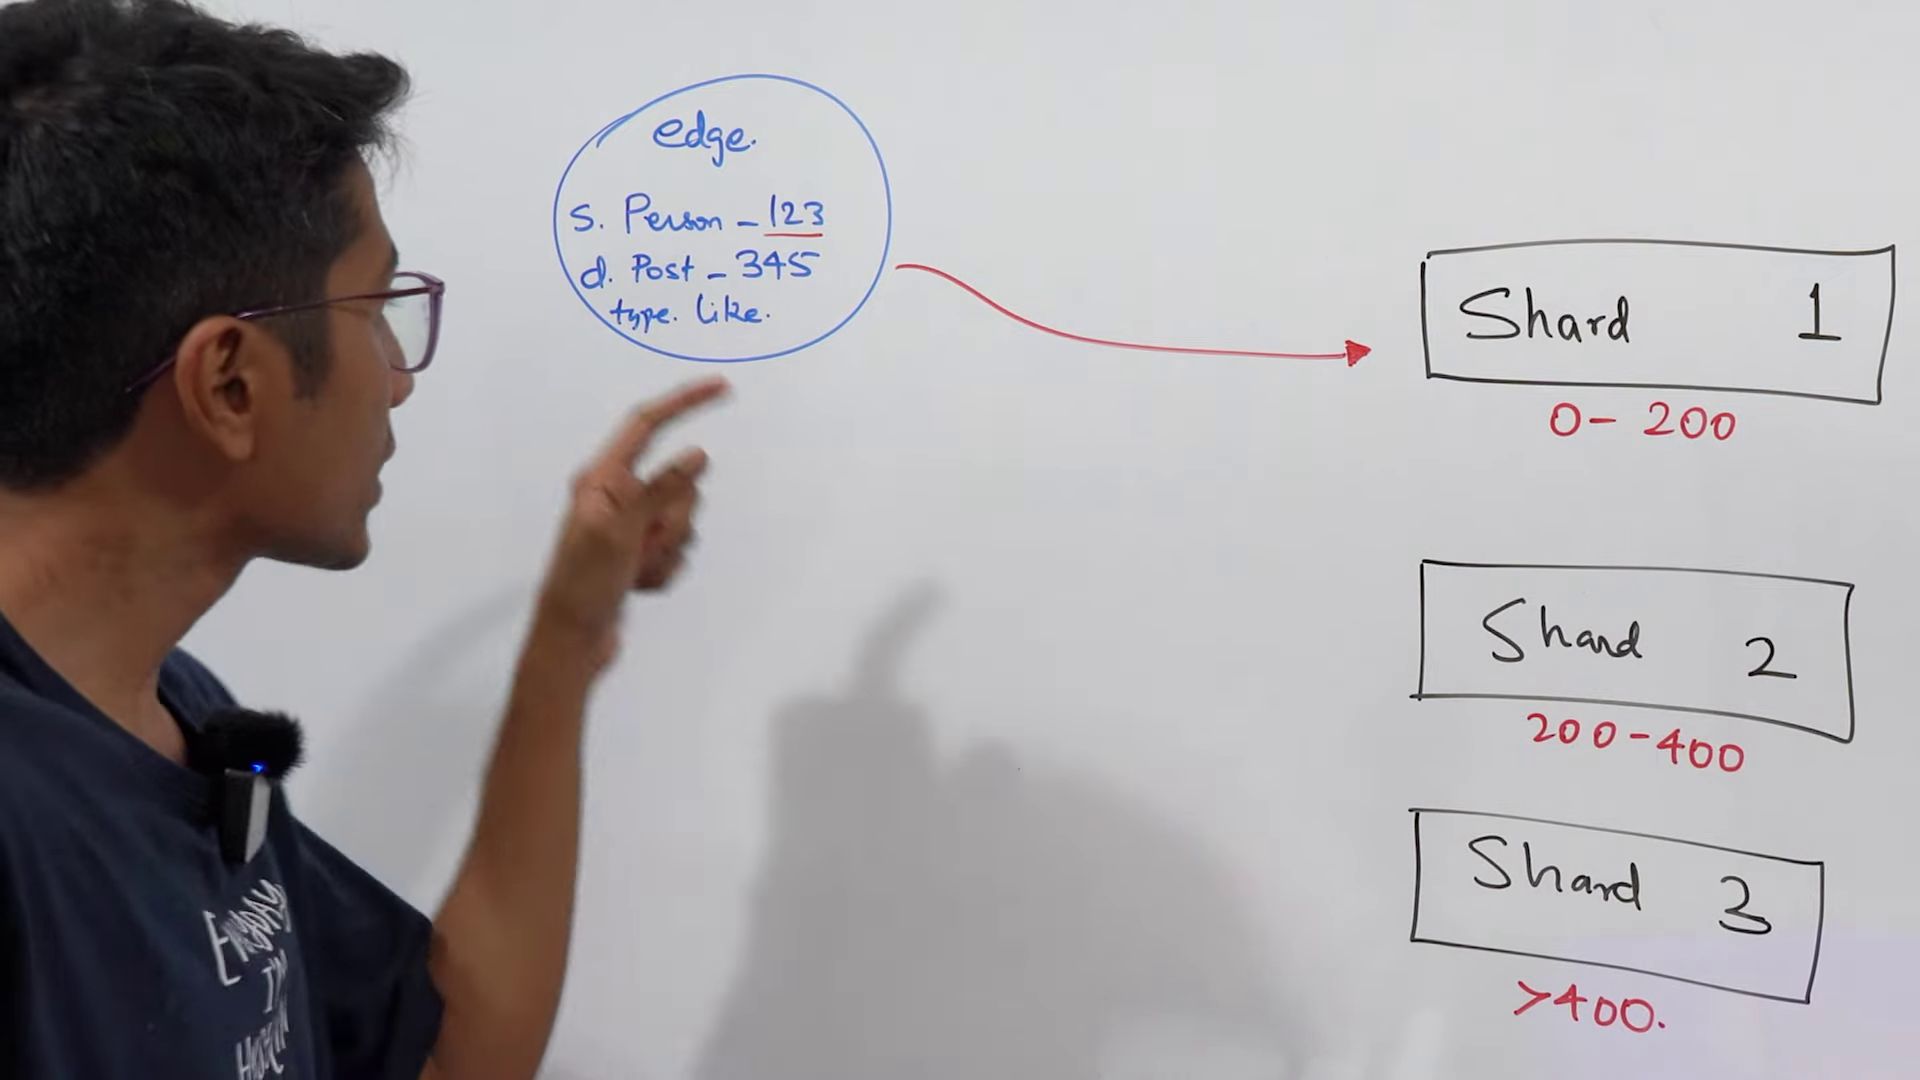 edge.
s. Person - 123
d. Post - 345
type. like.
Shard 1
0 - 200
Shard 2
200 - 400
Shard 3
>400.
I'm